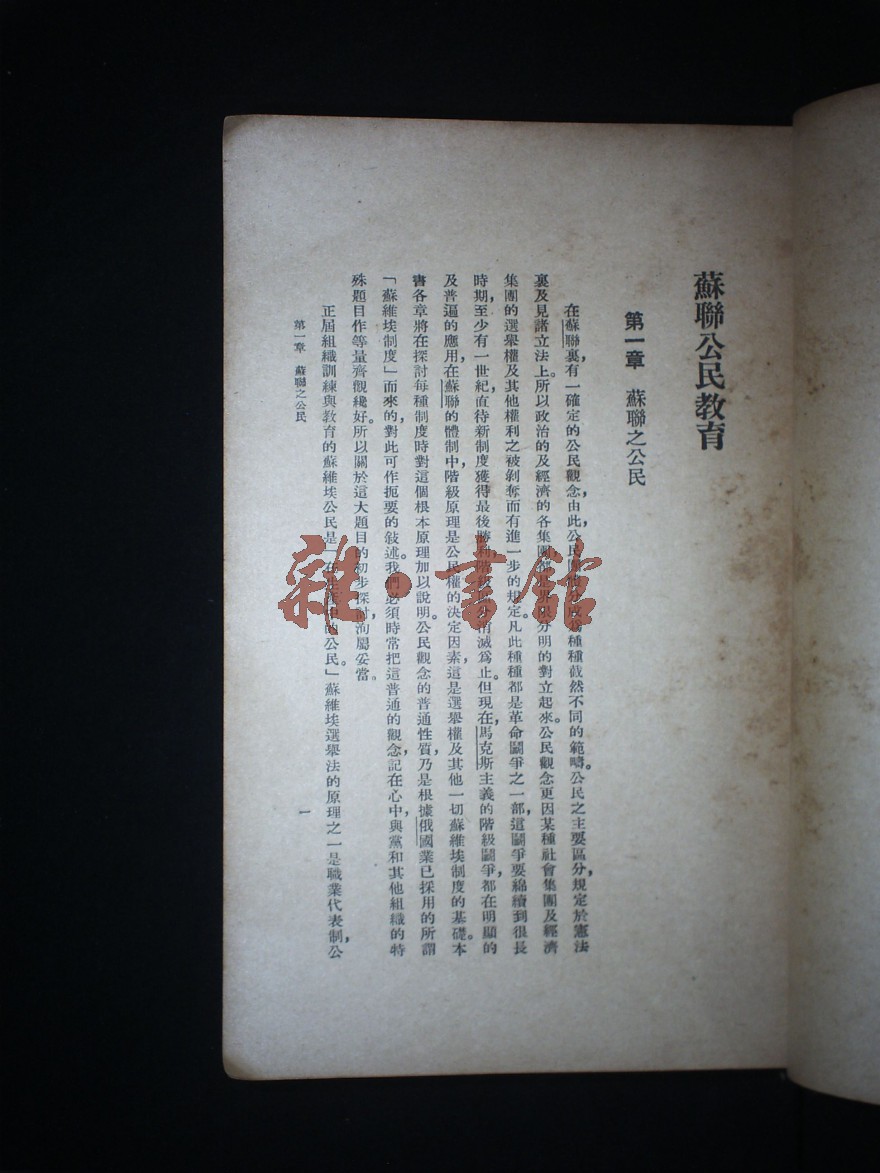 蘇聯公民教育
第一章 蘇聯之公民
在蘇聯裏,有一確定的公民觀念,由此,公民種種截然不同的範疇。公民之主要區分,規定於憲法
裏及見諸立法上。所以政治的及經濟的各集團分明的對立起來。公民觀念更因某種社會集團及經濟
集團的選舉權及其他權利之被剝奪而有進一步的規定。凡此種種都是革命鬭爭之一部,這鬭爭要綿續到很長
時期,至少有一世紀,直待新制度獲得最後勝利,階級消滅爲止。但現在,馬克斯主義的階級鬭爭,都在明顯的
及普遍的應用,在蘇聯的體制中,階級原理是公民權的決定因素,這是選舉權及其他一切蘇維埃制度的基礎。本
書各章將在探討每種制度時對這個根本原理加以說明。公民觀念的普通性質,乃是根據俄國業已採用的所謂
「蘇維埃制度」而來的,對此可作扼要的敍述。我們必須時常把這普通的觀念記在心中,與黨和其他組織的特
殊題目作等量齊觀纔好。所以關於這大題目的初步探討,洵屬妥當。
正屆組織訓練與教育的蘇維埃公民是「在生產中的公民。」蘇維埃選舉法的原理之一是職業代表制,公
第一章 蘇聯之公民
一
雜·書館